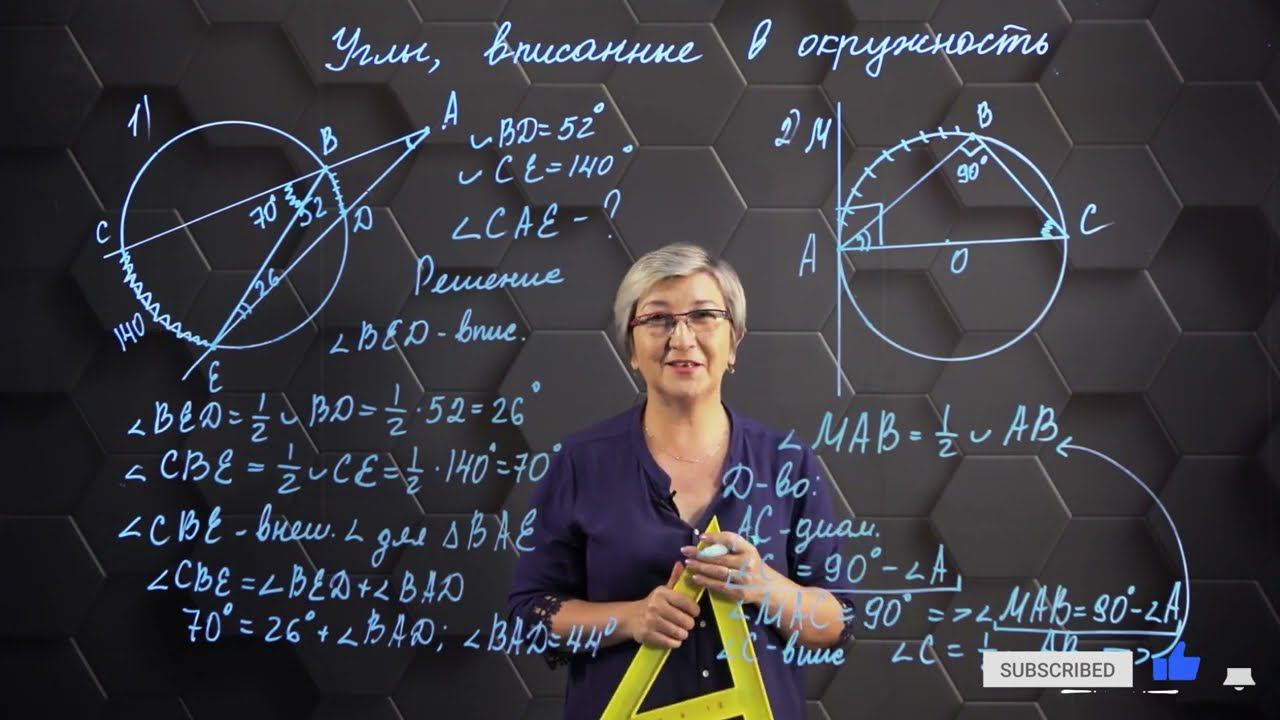 Углы, вписанные в окружность
1)
A
B
C
D
E
70°
52
26
140
◡BD=52°
◡CE=140°
∠CAE-?
Решение
∠BED-впис.
∠BED=1/2◡BD=1/2·52=26°
∠CBE=1/2◡CE=1/2·140°=70°
∠CBE-внеш.∠ для △BAE
∠CBE=∠BED+∠BAD
70°=26°+∠BAD; ∠BAD=44°
2)
M
B
90°
A
O
C
∠MAB=1/2◡AB
Д-во:
AC-диам.
∠C=90°-∠A
∠MAC=90° =>∠MAB=90°-∠A
∠C-впис ∠C=
AB =>
SUBSCRIBED